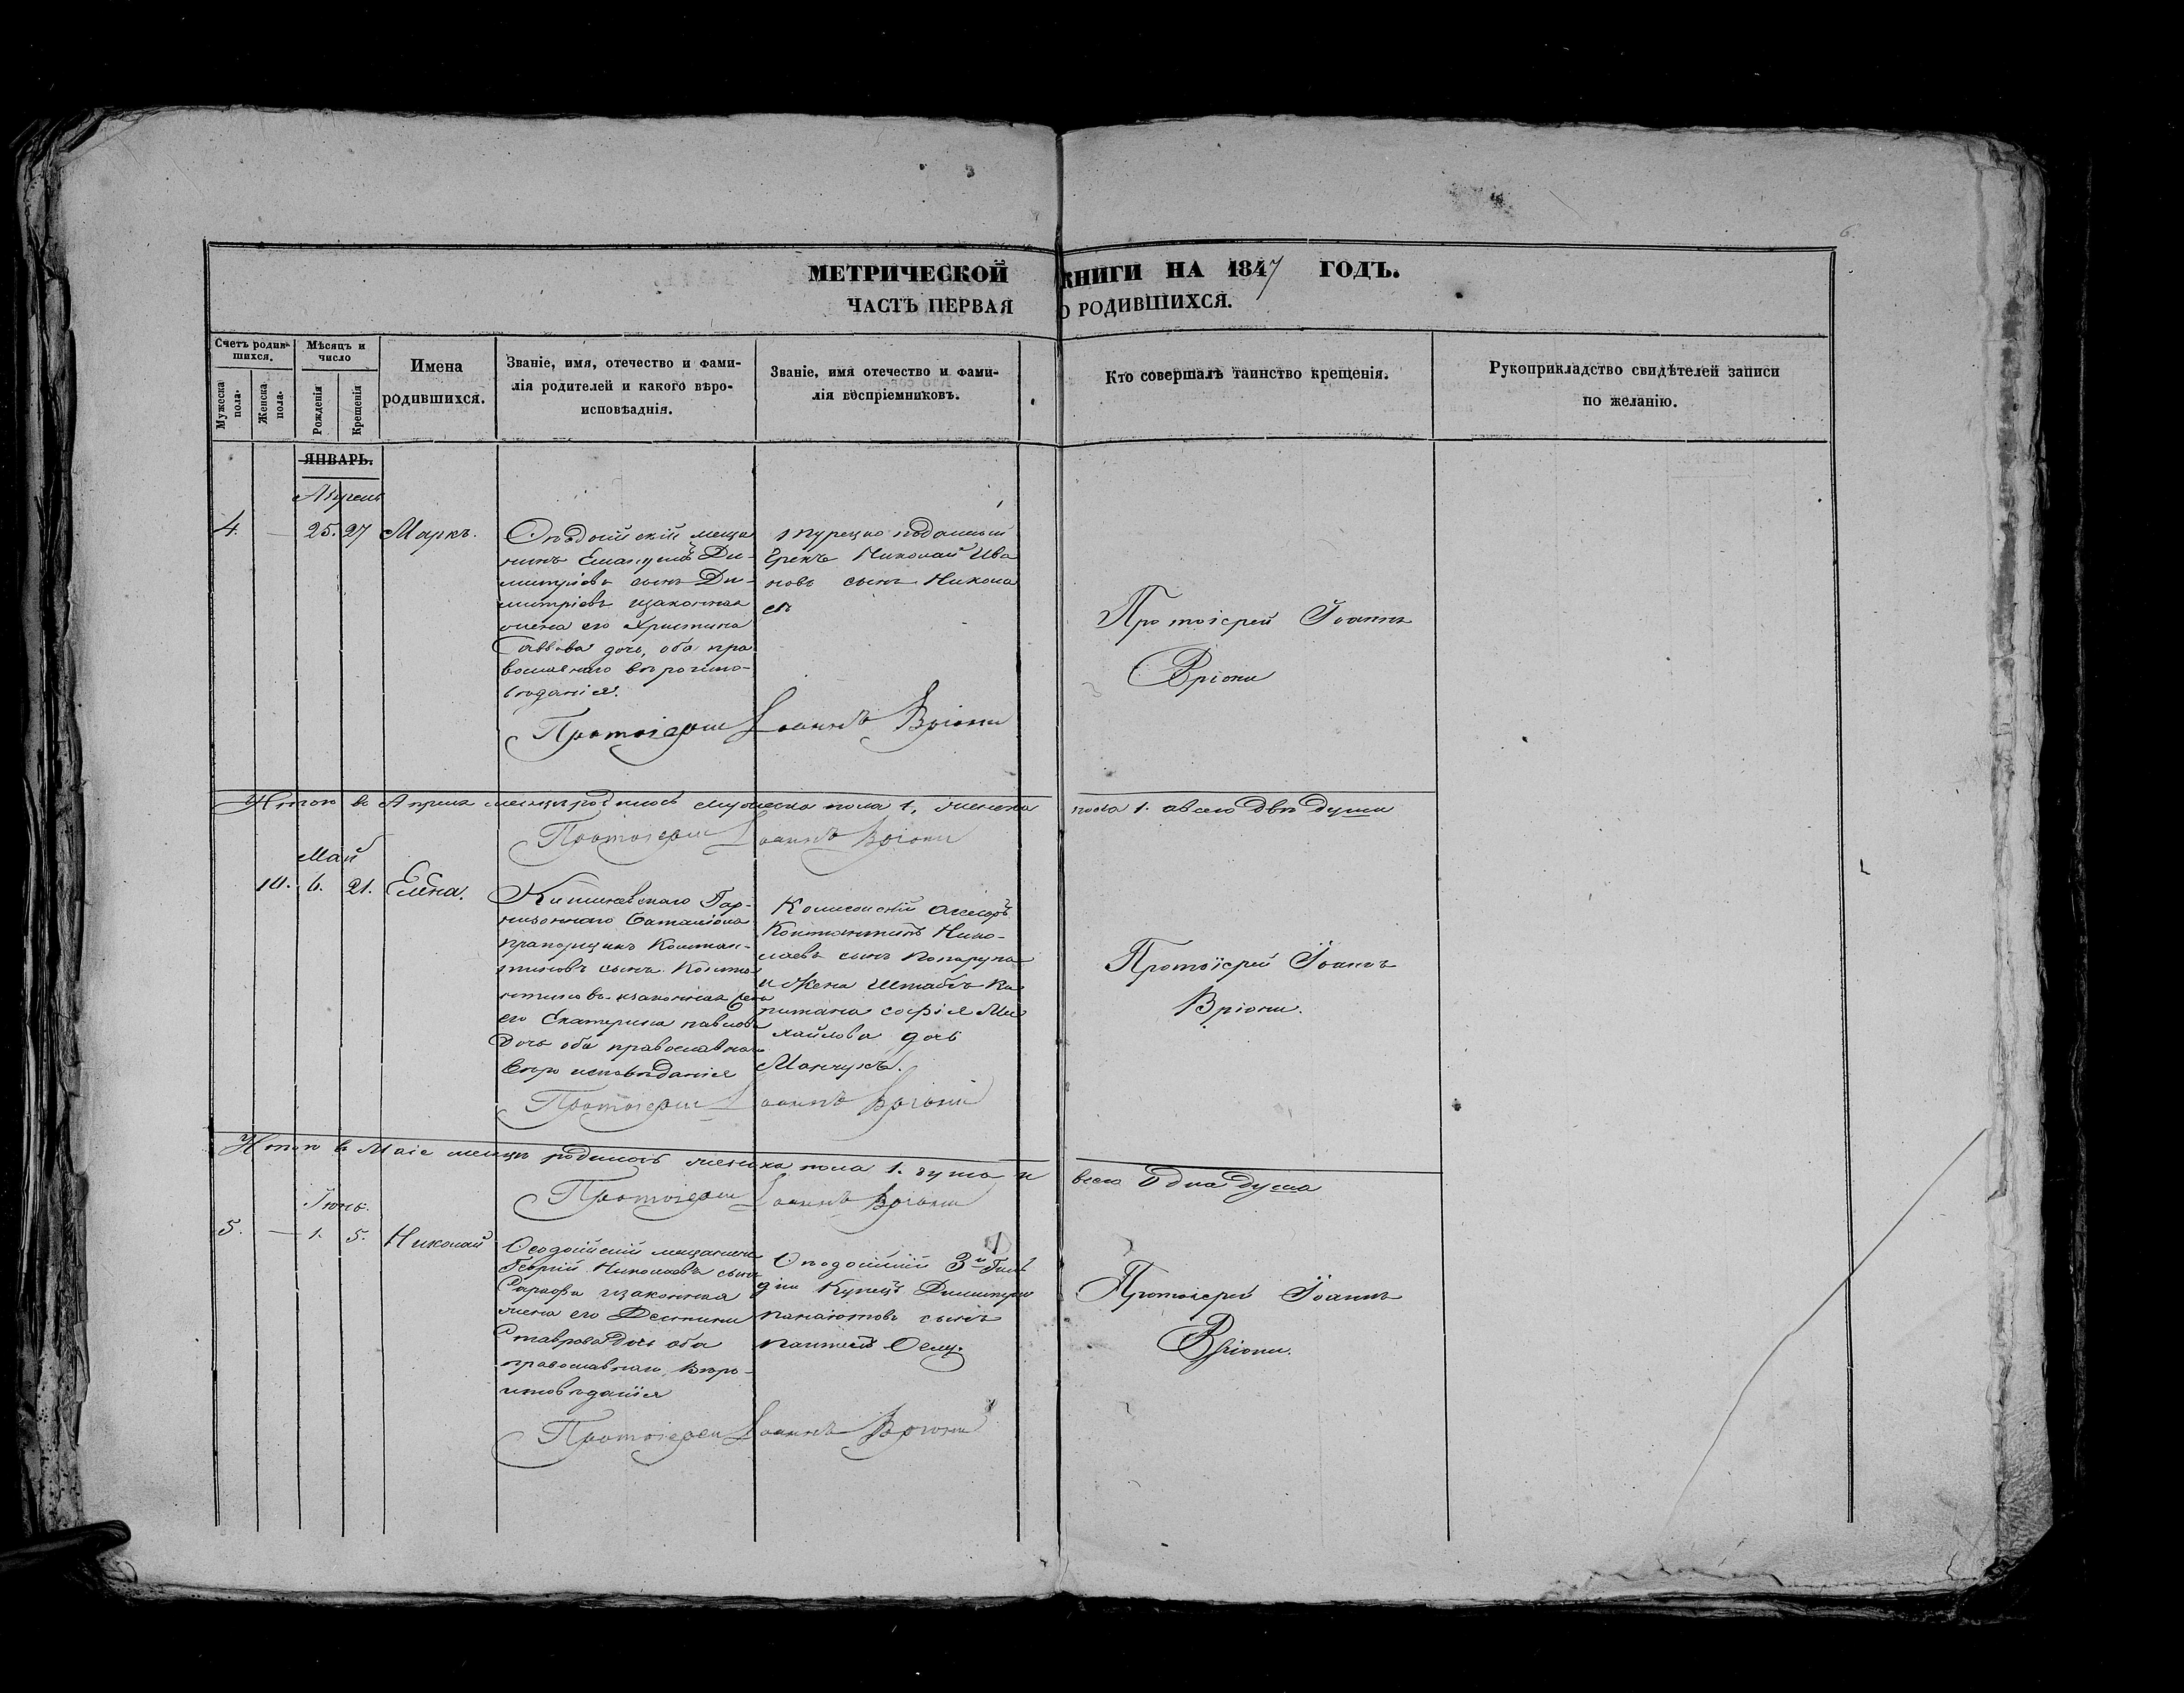 6.
МЕТРИЧЕСКОЙ КНИГИ НА 1847 ГОДЪ.
ЧАСТЬ ПЕРВАЯ О РОДИВШИХСЯ.
Счетъ родив-
шихся.
Мужеска
пола.
Женска
пола.
Мѣсяцъ и
число
Рожденія
Крещенія
Имена
родившихся.
Званіе, имя, отечество и фами-
лія родителей и какого вѣро-
исповѣаднія.
Званіе, имя отечество и фами-
лія воспріемниковъ.
Кто совершалъ таинство крещенія.
Рукоприкладство свидѣтелей записи
по желанію.
ЯНВАРЬ.
Апрель
4. — 25. 27 Маркъ.
мѣща
нинъ Ди-
митріевъ сынъ Ди-
митріевъ изаконная
жена его Христина
Саввова дочь, оба пра
вославнаго вѣроиспо-
вѣданія.
турецко подданный
Грекъ Николай Ива
новъ сынъ Никола
евъ
Протоіерей Іоаннъ
Вріони
Протоіерей Іоаннъ Вріони
Итого въ Апреле месяце родилось мужеска пола 1, женска пола 1. авсего двѣ души
Протоіерей Іоаннъ Вріони
Май
10. 6. 21. Елена.
Кишиневскаго Гар-
низоннаго баталіона
прапорщикъ Констан-
тиновъ сынъ Конста
нтиновъ изаконная жена
его Екатерина павлова
Дочь оба православнаго
вѣро исповѣданія
Константинъ Нико-
лаевъ сынъ
и Жена Штабсъ Ка
питана софія Ми
хайлова дочь
Протоіерей Іоаннъ
Вріони.
Протоіерей Іоаннъ Вріони
Итого въ Маіе месяце родилось женска пола 1. душа и всего Одна душа
Протоіерей Іоаннъ Вріони
Іюнь.
5. — 1. 5. Николай
Ѳеодосійскій мещанинъ
Георгій Николаевъ сынъ
изаконная
жена его Деспина
Ставрова Дочь оба
православнаго Вѣро-
исповѣданія
3й Гиль
діи Купецъ Димитрій
панаіотовъ сынъ
Протоіерей Іоаннъ
Вріони.
Протоіерей Іоаннъ Вріони